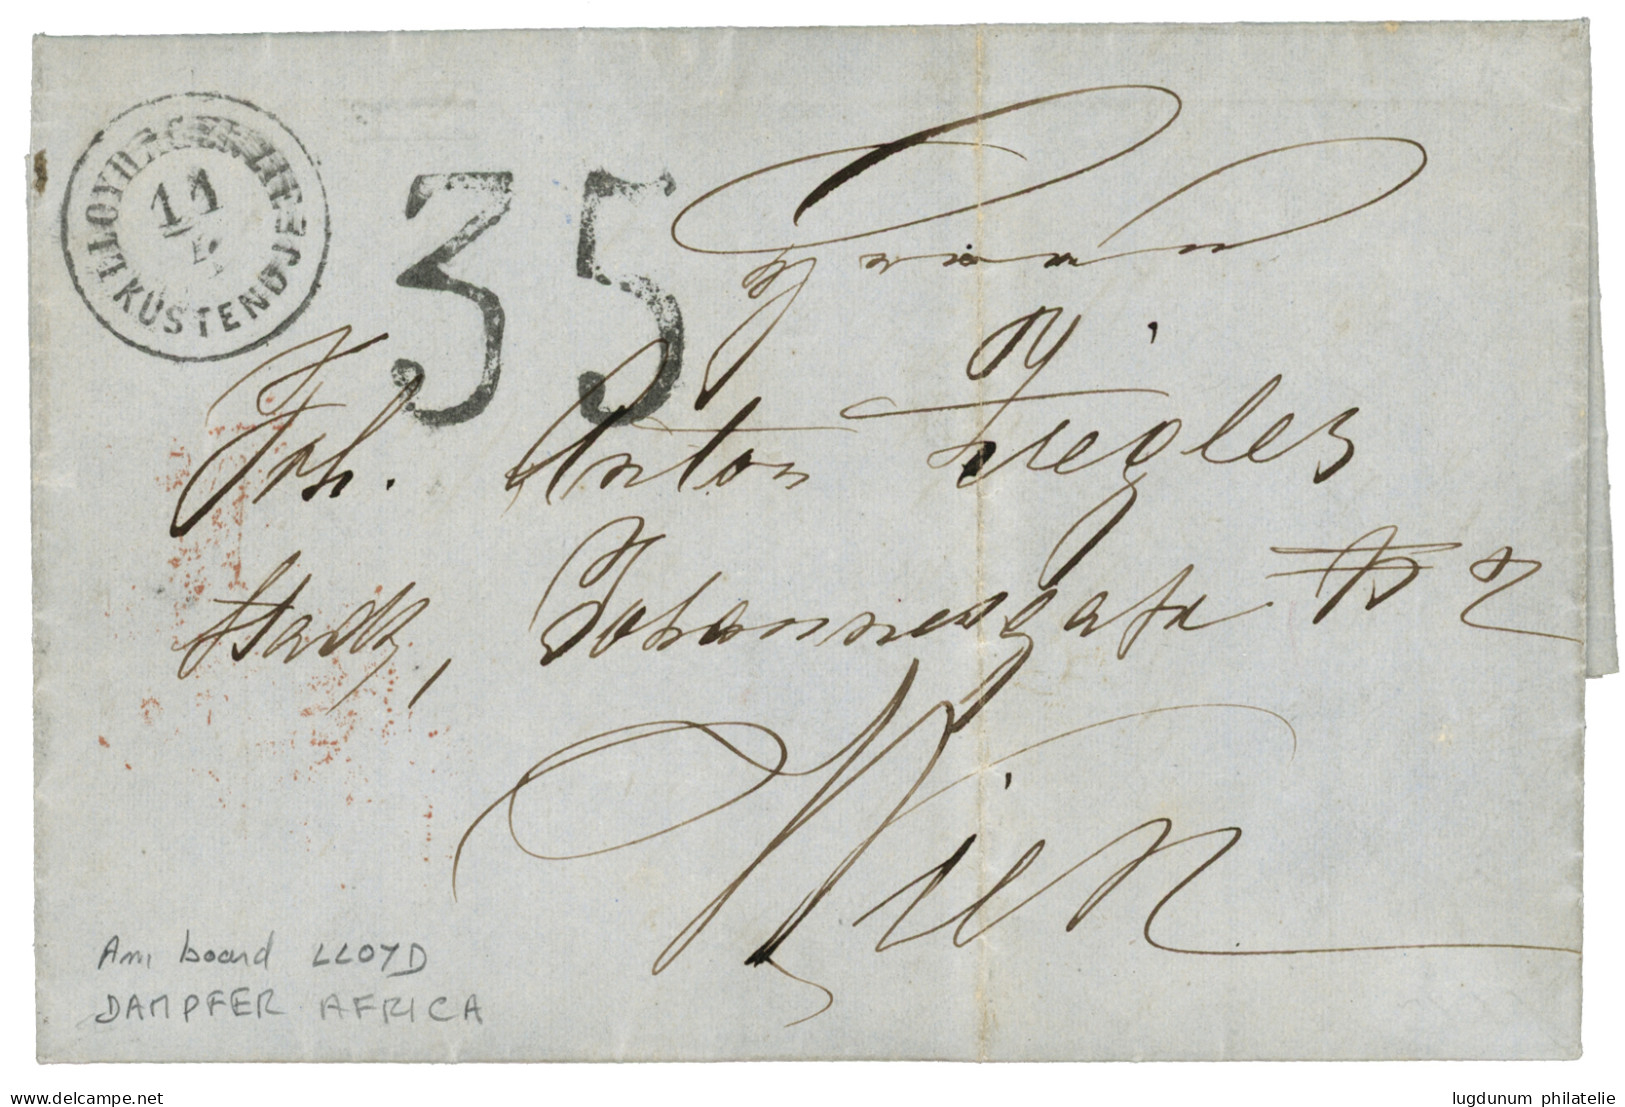 LLOYDAGENTIE
11
5
KÜSTENDJE
35
Herrn
Joh. Anton Ziegler
Stadt, Johannesgasse No 2
Wien
Am board LLOYD
DAMPFER AFRICA
www.delcampe.net
lugdunum philatelie